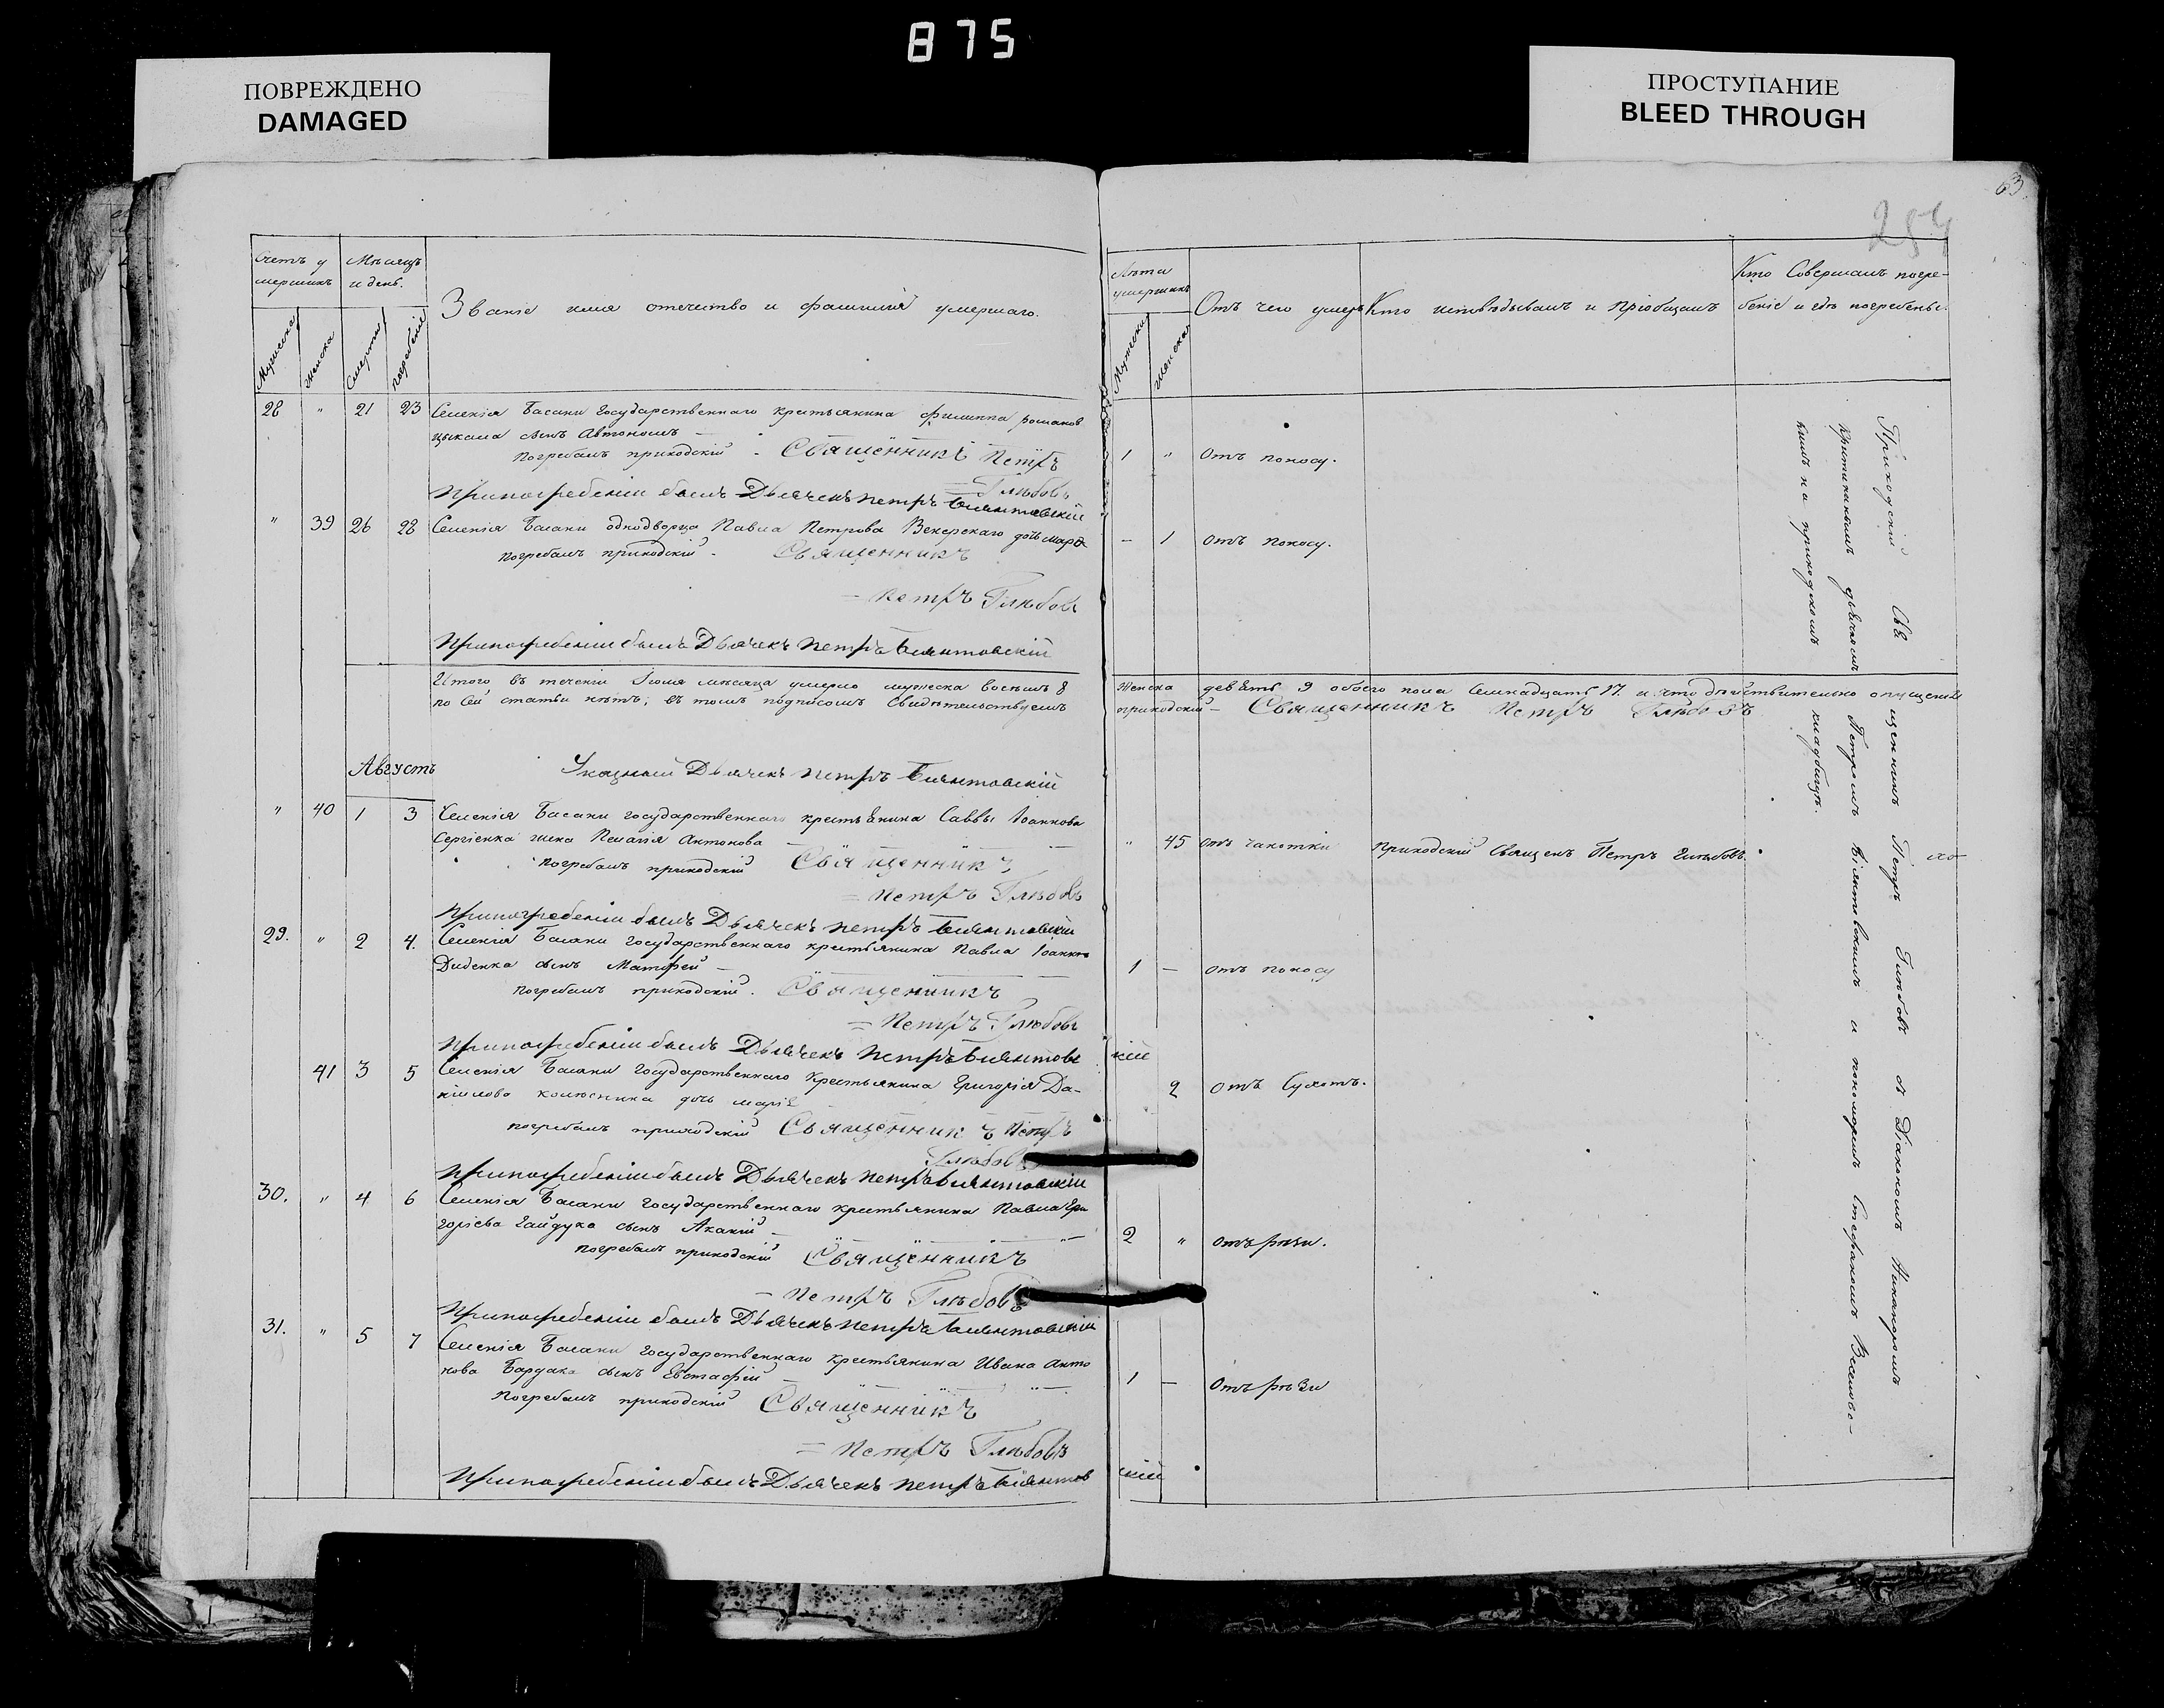 875
ПОВРЕЖДЕНО
DAMAGED
ПРОСТУПАНИЕ
BLEED THROUGH
63
Счетъ у
мершихъ
Мѣсяцъ
и день.
Мужеска
Женска
Смерти
погребенія
Званіе имя отечество и фамилія умершаго.
28 " 21 23 Селенія Басани Государственнаго крестьянина Филиппа романов
сынъ Автономъ
погребалъ приходскій Священникъ Петръ
Глѣбовъ
При погребеніи былъ Дьячекъ Петръ
" 39 26 28 Селенія Басани однодворца Павла Петрова дочь
погребалъ приходскій Священникъ
Петръ Глѣбовъ
При погребеніи былъ Дьячекъ Петръ
Итого въ теченіи Іюля мѣсяца умерло мужеска восемь 8
по сей статьи нѣтъ; въ томъ подписомъ свидѣтельствуемъ
Указный Дьячекъ Петръ
Августъ
" 40 1 3 Селенія Басани государственнаго крестьянина Саввы Іоаннова
Сергіенка жена Пелагія Антонова
погребалъ приходскій Священникъ
Петръ Глѣбовъ
При погребеніи былъ Дьячекъ Петръ
29. " 2 4. Селенія Басани государственнаго крестьянина Павла Іоаннов
Диденка сынъ Матфей
погребалъ приходскій. Священникъ
Петръ Глѣбовъ
При погребеніи былъ Дьячекъ Петръ
41 3 5 Селенія Басани Государственнаго Крестьянина Григорія Да-
нилова дочь
погребалъ приходскій Священникъ Петръ
Глѣбовъ
При погребеніи былъ Дьячекъ Петръ
30. " 4 6 Селенія Басани государственнаго крестьянина Павла Гри
горіева Гайдука сынъ Акакій
погребалъ приходскій Священникъ
Петръ Глѣбовъ
При погребеніи былъ Дьячекъ Петръ
31. " 5 7 Селенія Басани государственнаго крестьянина Ивана Анто
нова сынъ Евстафей
погребалъ приходскій Священникъ
Петръ Глѣбовъ
При погребеніи былъ Дьячекъ Петръ
Лѣта
умершихъ
Мужска
Женска
Отъ чего умеръ
Кто исповѣдывалъ и пріобщалъ
Кто Совершалъ погре-
беніе и гдѣ погребены.
1 " Отъ поносу.
- 1 отъ поносу.
Женска девять 9 обоего пола семнадцать 17. и что дѣйствительно
приходскій Священникъ Петръ Глѣбовъ
" 45 Отъ чахотки Приходскій Священ Петръ Глѣбовъ.
1 - отъ поносу
кій
2 отъ Сухотъ.
2 " отъ рѣзи.
1 - Отъ рѣзи
скій
Приходскій Свя
щенникъ Петръ Глѣбовъ съ Діакономъ Никаноромъ
Петромъ и пономаремъ Стефаномъ
на приходскомъ
кладбищѣ.